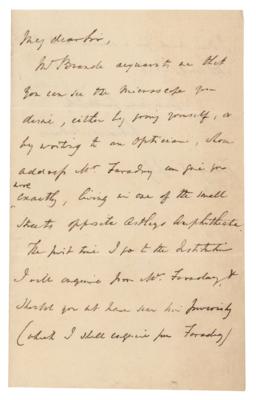 My dear Sir,
Mr Brande acquaints me that
you can see the microscope you
desire, either by going yourself, or
by writing to an Optician, whose
address Mr Faraday can give you
more
exactly, living in one of the small
streets opposite Astleys Amphitheatre.
The first time I go to the Institution
I will enquire from Mr. Faraday, &
should you not have seen him previously
(which I shall enquire from Faraday)